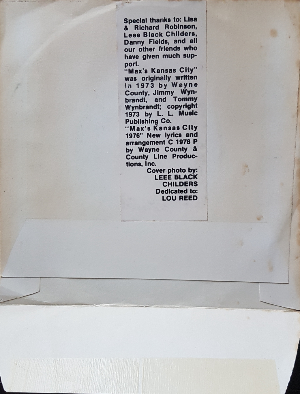 Special thanks to: Lisa
& Richard Robinson,
Leee Black Childers,
Danny Fields, and all
our other friends who
have given much sup-
port.
"Max's Kansas City"
was originally written
in 1973 by Wayne
County, Jimmy Wyn-
brandt, and Tommy
Wynbrandt; copyright
1973 by L. L. Music
Publishing Co.
"Max's Kansas City
1976" New lyrics and
arrangement C 1976 P
by Wayne County &
County Line Produc-
tions, Inc.
Cover photo by:
LEEE BLACK
CHILDERS
Dedicated to:
LOU REED